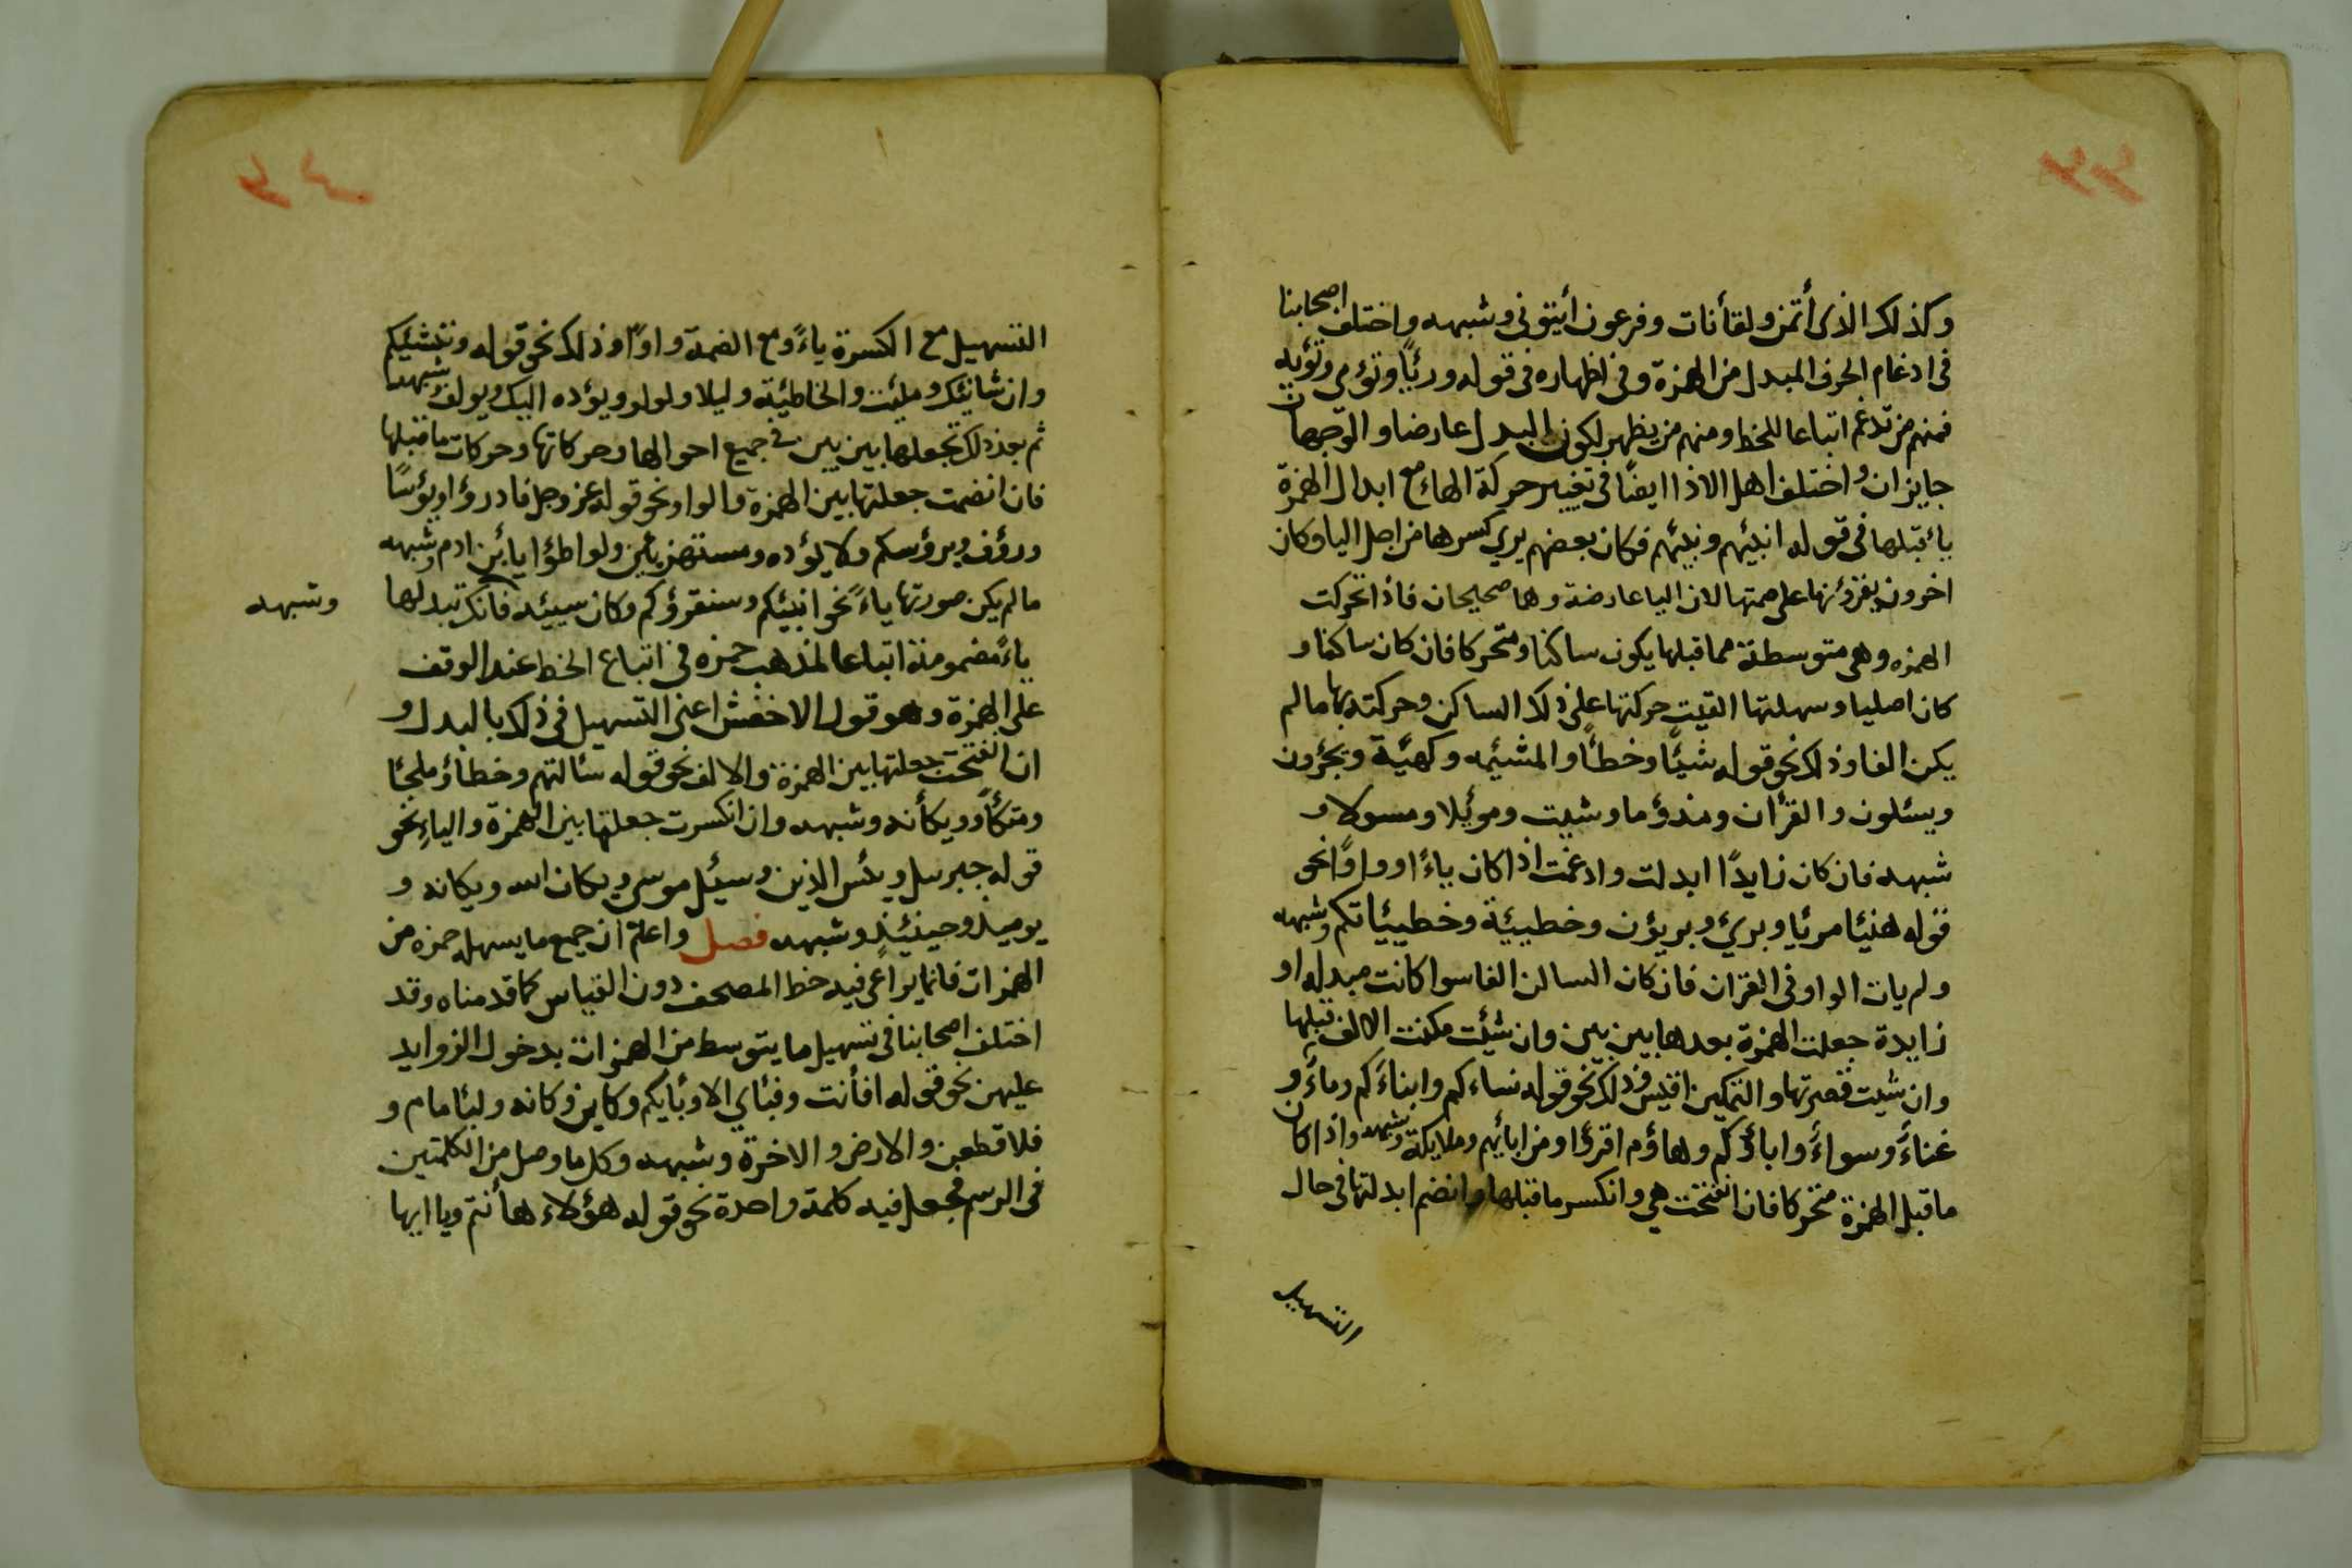 وكذلك الذى أتمن ولقأنات وفرعون أئيتونى وشبهه واختلف اصحابنا
فى ادغام الحرف المبدل من الهمزة وفى اظهاره فى قوله ورئيًا وتؤى وتؤيه
فمنهم من تدغم اتباعا للخط ومنهم من يظهر لكون البدل عارضا والوجهان
جايزان واختلف اهل الاداا ايضًا فى تغيير حركة الهاء مع ابدال الهمزة
يأ قبلها فى قوله انبئيهم ونبئيهم فكان بعضهم يري كسرها من اجل اليا وكان
اخرون يقرؤنها على ضمتها لان اليا عارضة وهما صحيحان فاذا تحركت
الهمزه وهى متوسطة فما قبلها يكون ساكنا ومتحركا فان كان ساكنا و
كان اصليا وسهلتها القيت حركتها على ذلك الساكن وحركته بها مالم
يكن الفا وذلك نحو قوله شيئًا وخطأً والمشئمه وكهئية وتجئرون
ويسئلون والقرأن ومذؤما وشيت وموئيلا ومسولا و
شبهه فان كان زايدًا ابدلت وادغمت اذا كان ياءً او واوًا نحو
قوله هنيئا مرئيا وبرئ وبريؤن وخطييئة وخطييئاتكم وشبهه
ولم يات الواو فى القران فان كان الساكن الفا سوا كانت مبدله او
زايدة جعلت الهمزة بعدها بين بين وان شئيت مكنت الالف قبلها
وان شيت قصرتها والتمكين اقيس وذلك نحو قوله نساءكم وابناءكم وماءً و
غثاءً وسواءً واباؤكم وهاؤم اقرؤا ومن ابائيهم وملايكة وشبهه واذا كان
ما قبل الهمزة متحركا فان انفتحت هي وانكسر ما قبلها او انضم ابدلتها فى حال
التسهيل
التسهيل مع الكسرة ياءً ومع الضمة واوًا وذلك نحو قوله وننشئيكم
وان شانئيك ومليئت والخاطئية وليلا ولولو ويؤده اليك ويولف وشبهه
ثم بعد ذلك تجعلها بين بين فى جميع احوالها وحركاتها وحركات ما قبلها
فان انضمت جعلتها بين الهمزة والواو نحو قوله عز وجل فادرؤا ويؤسًا
ورؤف وبرؤسكم ولا يؤده ومستهزيئن وليواطؤا يابئن ادم وشبهه
مالم يكن صورتها ياءً نحو انبئيكم وسنقرؤكم وكان سيئه فانك تبدلها
وشبهه
ياءً مضمومة اتباعا لمذهب حمزه فى اتباع الخط عند الوقف
على الهمزة وهو قول الاخفش اعنى التسهيل فى ذلك بالبدل و
ان انفتحت جعلتها بين الهمزة والالف نحو قوله سئالتهم وخطأً وملجئا
ومتكأً وويكأنه وشبهه وان انكسرت جعلتها بين الهمزة والياء نحو
قوله جبريل ويئس الذين وسيئل موسى ويكان الله ويكانه و
يوميذ وحينئيذٍ وشبهه فصل واعلم ان جميع ما يسهله حمزه من
الهمزات فانما يراعى فيه خط المصحف دون القياس كما قدمناه وقد
اختلف اصحابنا فى تسهيل ما يتوسط من الهمزات بدخول الزوايد
عليهن نحو قوله افأنت وفبئاى الا وئابيكم وكاين وكانه ولبئامام و
فلاقطعن والارض والاخرة وشبهه وكل ما وصل من الكلمتين
فى الرسم فجعل فيه كلمة واحدة نحو قوله هؤلاء هاأنتم وياايها